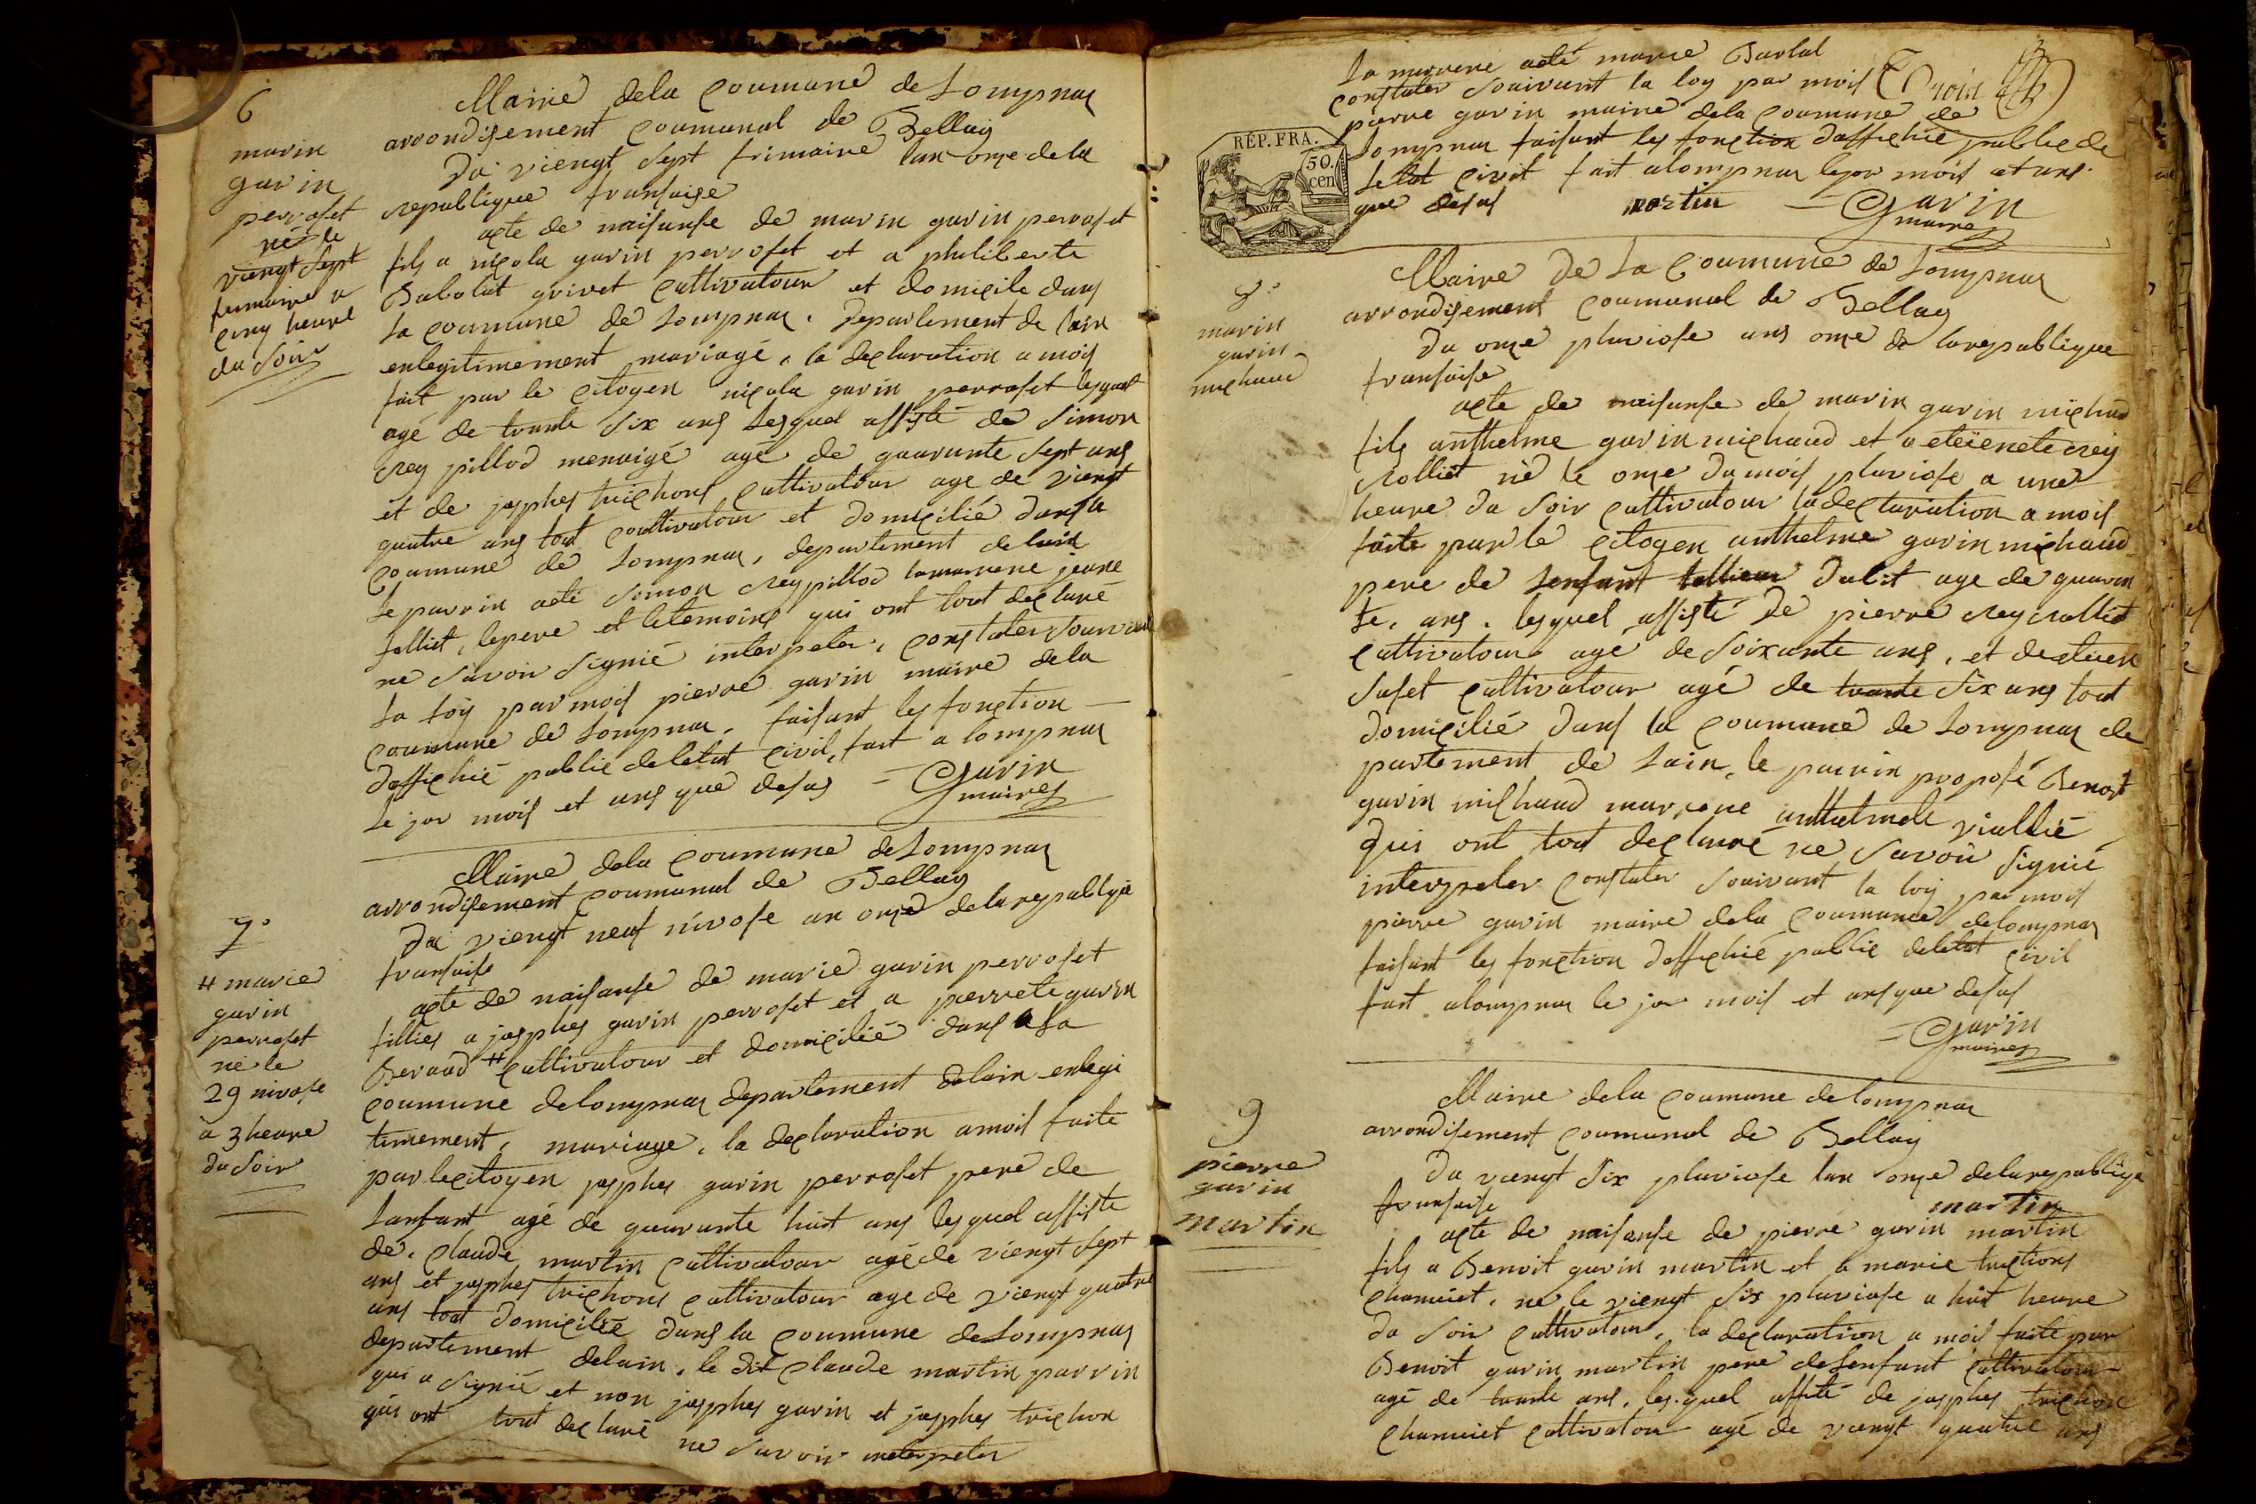 6
marin
garin
perroset
né le
viengt sept
frimaire a
cinq heure
du soir
Mairie dela Coumune de Lompnas
arrondisement Coumunal de Bellay
Du viengt sept frimaire lan onze de la
republique fransaise
acte de naisanse de marin garin perroset
fils a nicola garin perroset et a philiberte
Babolat grivet Cultivatour et domicile dans
la Coumune de Lompnas. Departement de lain
enlegitimement mariagé, la declaration a mois
fait par le Citoyen nicola garin perroset lesquel
age de trante six ans lesquel assisté de Simon
rey pillod menaigé agé de quarunte sept ans
et de josphes trichons Cultivatour age de viengt
quatre ans tout Coultivatour et domicilié dans la
Coumune de Lompnas, departement de lain
Le parrin acté Simon reypillod lamarrene jeane
Jolliet, lepere et letemoins qui ont tout declaré
ne savoir signié interpeler, constater souivant
La loy par mois pierre garin maire dela
Coumune de Lompnas. faisant les fonction
daffichié public deletat civil, fait a lompnas
Le jor mois et ans que desus = Garin
maires
7°
# marie
garin
perroset
né le
29 nivose
a 3 heure
du soir
Maire dela Coumune de Lompnas
arrondisement Coumunal de Bellay
Du viengt neuf nivose an onze delarepublyie
fransaise
acte de naisanse de marie garin perroset
fillies a josphes garin perroset et a pierrete garin
Beraud # Cultivatour et domicilié dans la
Coumune delompnas departement delain enlegi
timement, mariage, la declaration amois faite
par lecitoyen josphes garin perroset pere de
Lanfant agé de quarunte huit ans lesquel assiste
de. Claude martin Cultivatour agé de viengt sept
ans et josphes trichons Cultivatour age de viengt quatre
ans tout Domicilié dans la Coumune de Lompnas
departement delain. le dit Claude martin parrin
qui a signié et non josphes garin et josphes trichon
qui ont tout declaré ne savoir interpeler
La marrene acté marie
Constater souivant la loy par mois
pierre garin maire dela Coumune de
Lompnas faisant les fonction daffichié publicde
Letat Civil fait alompnas lejor mois et ans
que desus martin = Garin
maires
RÉP. FRA.
50.
cen
8°
marin
garin
michaud
Maire De La Coumune de Lompnas
arrondisement Coumunal de Bellay
Du onze pluviose ans onze de larepublique
fransaise
acte de naisanse de marin garin michaud
fils anthelme garin michaud et a eteienete rey
rolliet né le onze du mois pluviose a une
heure du soir Cultivatour la declaration a mois
faite par le Citoyen anthelme garin michaud
pere de Lenfant age de quaran
te, ans. lesquel assisté De pierre rey rolliet
Cultivatour agé de soixante ans, et de etieen
suset Cultivatour agé de trante six ans tout
domicilié dans la Coumune de Lompnas de
partement de Lain, le parrin proposé Benoit
garin michaud marrene anthelmete viallié
Qui ont tout declaré ne savoir signié
interpeler Constater souivant la loy par mois
pierre garin maire dela Coumune delompnas
faisant les fonction daffichié public deletat civil
fait alompnas le jor mois et ansque desus
= Garin
maires
9
pierre
garin
martin
Maire dela Coumune de Lompnas
arrondisement Coumunal de Bellay
Du viengt six pluviose lan onze delarepubliqe
fransaise martin
acte de naisanse de pierre garin martin
fils a Benoit garin martin et a marie trictions
Chamiet, né le viengt six pluviose a huit heure
du soir Cultivatour, la declaration a mois faite par
Benoit garin martin pere delenfant Cultivatour
agé de trante ans. lesquel assité de josphes trichons
Chamiet Cultivatour agé de viengt quatre ans